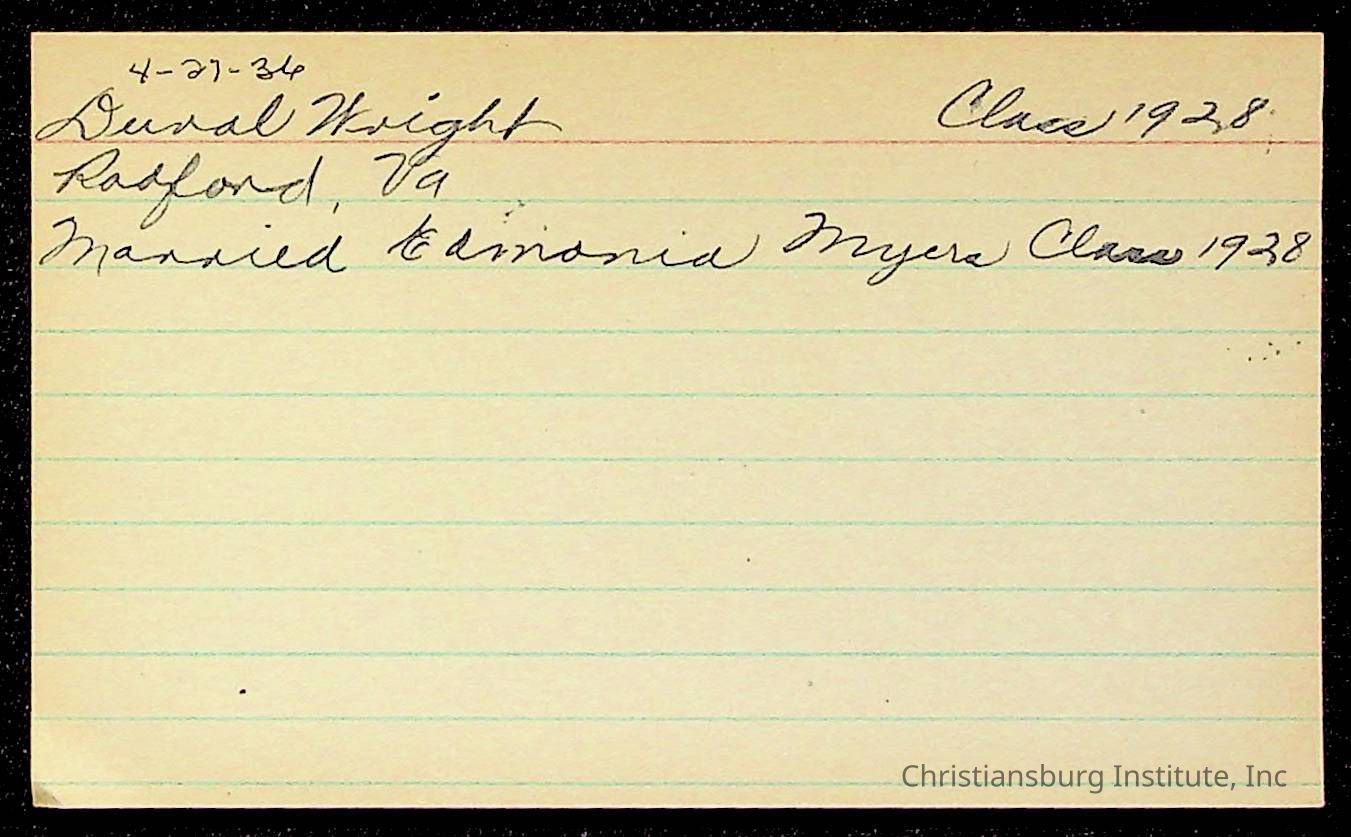 4-27-36
Duval Wright Class 1928
Radford, Va
Married Edmonia Myers Class 1928
Christiansburg Institute, Inc